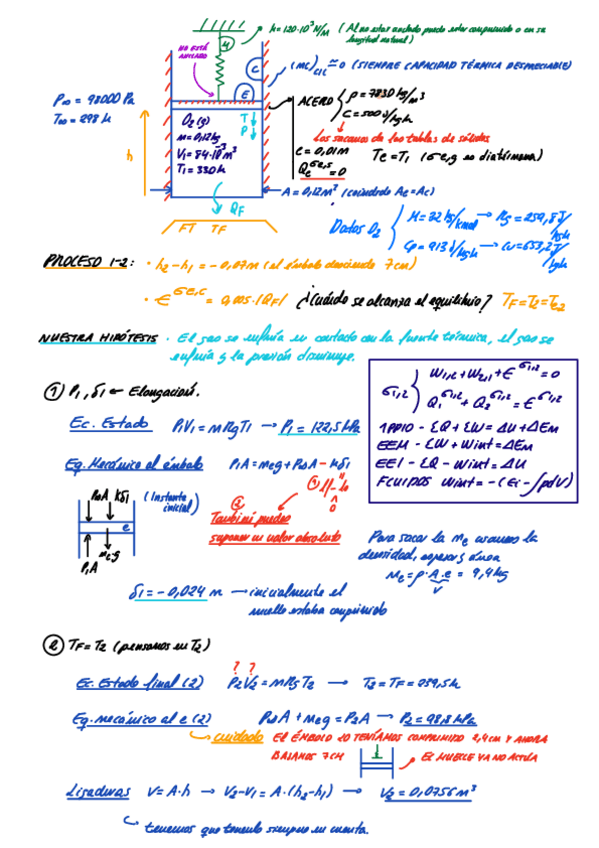 k=120·10³N/m (Al no estar anclado puede estar comprimido o en su
longitud natural)
NO ESTÁ
ANCLADO
M
C
E
(mc)cil ≈ 0 (SIEMPRE CAPACIDAD TÉRMICA DESPRECIABLE)
P∞ = 98000 Pa
T∞ = 298 K
h
O₂ (g)
m=0,12kg
V₁=84·10⁻³m³
T₁=330K
T↓
P↓
ACERO { ρ=7830 kg/m³
C=500 J/kgK
Los sacamos de las tablas de sólidos
e=0,01m
Te=T₁ (σe,g es diatérmana)
Qe^σe,s = 0
A=0,12m² (cuidado Ae=Ac)
QF
FT TF
Datos O₂ { M=32 kg/kmol → Rg=259,8 J/kgK
Cp=913 J/kgK → Cv=653,2 J/kgK
PROCESO 1-2: · h₂-h₁=-0,07m (el émbolo desciende 7cm)
· E^σe,c = 0,005·|QF| ¿Cuándo se alcanza el equilibrio? TF=T₂=Te₂
NUESTRA HIPÓTESIS · El gas se enfría en contacto con la fuente térmica, el gas se
enfría y la presión disminuye.
σ₁,₂ { W₁,₂+W₂,₁+E^σ₁,₂=0
Q₁^σ₁,₂ + Q₂^σ₁,₂ = E^σ₁,₂
1PPIO - ΣQ+ΣW=ΔU+ΔEm
EEM - ΣW+Wint=ΔEm
EEI - ΣQ-Wint=ΔU
FLUIDOS Wint=-(Ei-∫pdV)
① P₁, δ₁ ← Elongación.
Ec. Estado P₁V₁=mRgT₁ → P₁=122,5kPa
Eq. Mecánico al émbolo P₁A=meg+P∞A-kδ₁
P∞A kδ₁
(Instante
inicial)
e
meg
P₁A
También puedes
suponer un valor absoluto
Para sacar la me usamos la
densidad, espesor y área
me=ρ·A·e = 9,4kg
V
δ₁=-0,024 m → inicialmente el
muelle estaba comprimido
② TF=T₂ (pensamos en T₂)
? ?
Ec. Estado final (2) P₂V₂=mRgT₂ → T₂=TF=239,5K
Eq. mecánico al e (2) P∞A+meg=P₂A → P₂=98,8kPa
cuidado EL ÉMBOLO LO TENÍAMOS COMPRIMIDO 2,4cm Y AHORA
BAJAMOS 7CM
EL MUELLE YA NO ACTÚA
Ligaduras V=A·h → V₂-V₁=A·(h₂-h₁) → V₂=0,0756m³
tenemos que tenerlo siempre en cuenta.